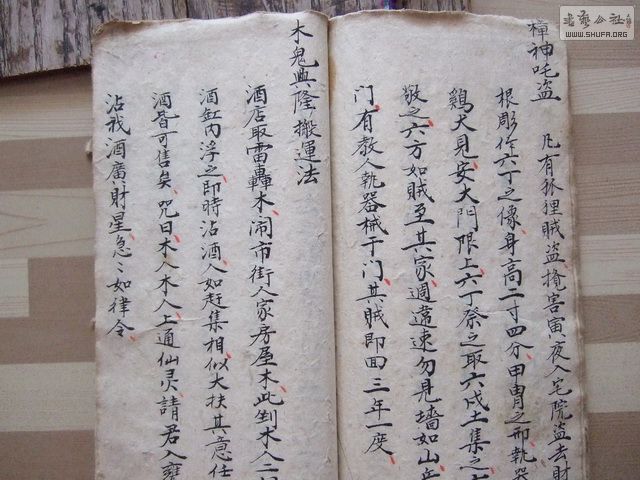 樟神吒盗
凡有狐狸賊盗擾害寅夜入宅院盗去財
根彫作六丁之像身高二寸四分甲胄之形執器
鷄犬見安大門限上六丁祭之取六戊土集之
敬之六方如賊至其家週遶速勿見墻如山
門有教人執器械于门其賊即回三年一度
木鬼興隆搬運法
酒店取雷轟木闹市街人家房屋木此刻木人二
酒缸内浮之即時沽酒人如赶集相似大扶其意任
酒皆可售矣咒曰木人木人上通仙灵請君入甕
沾我酒廣財星急〻如律令
書藝公社
WWW.SHUFA.ORG